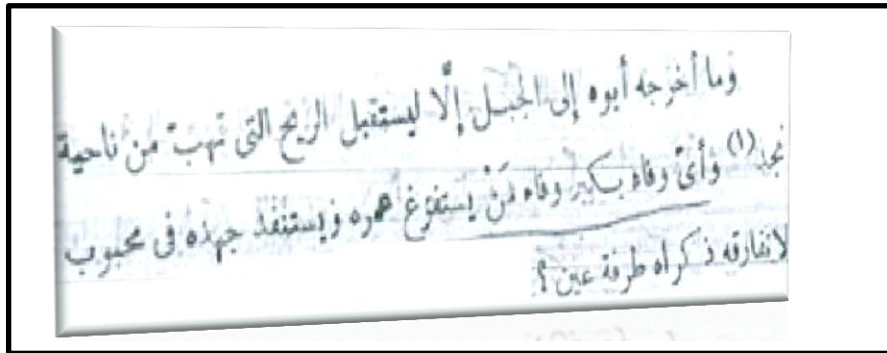 وما أخرجه أبوه إلى الجبل إلَّا ليستقبل الريح التى تهبّ من ناحية
نجد (١) وأىّ وفاء يكبر وفاء مَنْ يستفرغ عمره ويستنفد جهده فى محبوب
لاتفارقه ذكراه طرفة عين ؟